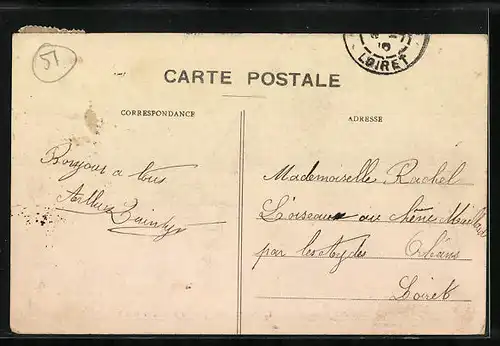 51
LOIRET
CARTE POSTALE
CORRESPONDANCE
ADRESSE
Bonjour a tous
Arthur
Mademoiselle Rachel
L'oiseau au chêne Maillard
par les Aydes Orléans
Loiret